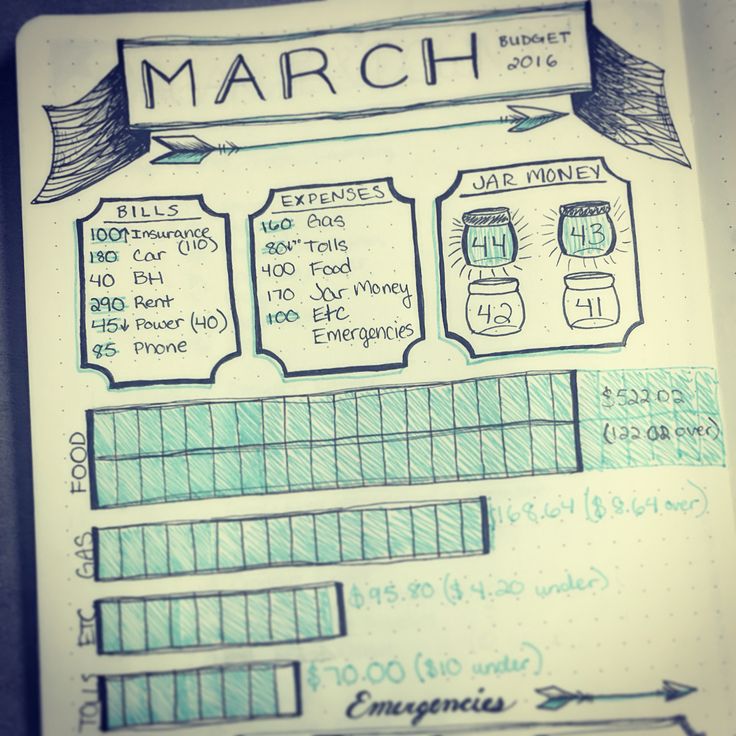 MARCH
BUDGET
2016
BILLS
100↑ Insurance
(110)
180 Car
40 BH
290 Rent
45↓ Power (40)
85 Phone
EXPENSES
160 Gas
80 Tolls
400 Food
170 Jar Money
100 Etc
Emergencies
JAR MONEY
44
43
42
41
FOOD
$522.02
(122.02 over)
GAS
$168.64 ($8.64 over)
ETC
$95.80 ($4.20 under)
TOLLS
$70.00 ($10 under)
Emergencies